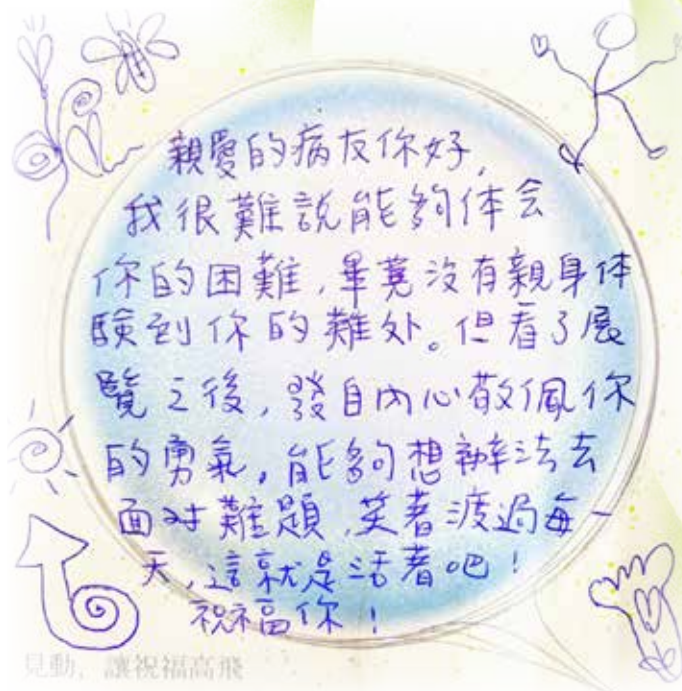 親愛的病友你好,
我很難說能夠体会
你的困難,畢竟沒有親身体
驗到你的難処。但看了展
覽之後,發自內心敬佩你
的勇氣,能夠想辦法去
面对難題,笑著渡過每一
天,這就是活着吧!
祝福你!
見動,讓祝福高飛